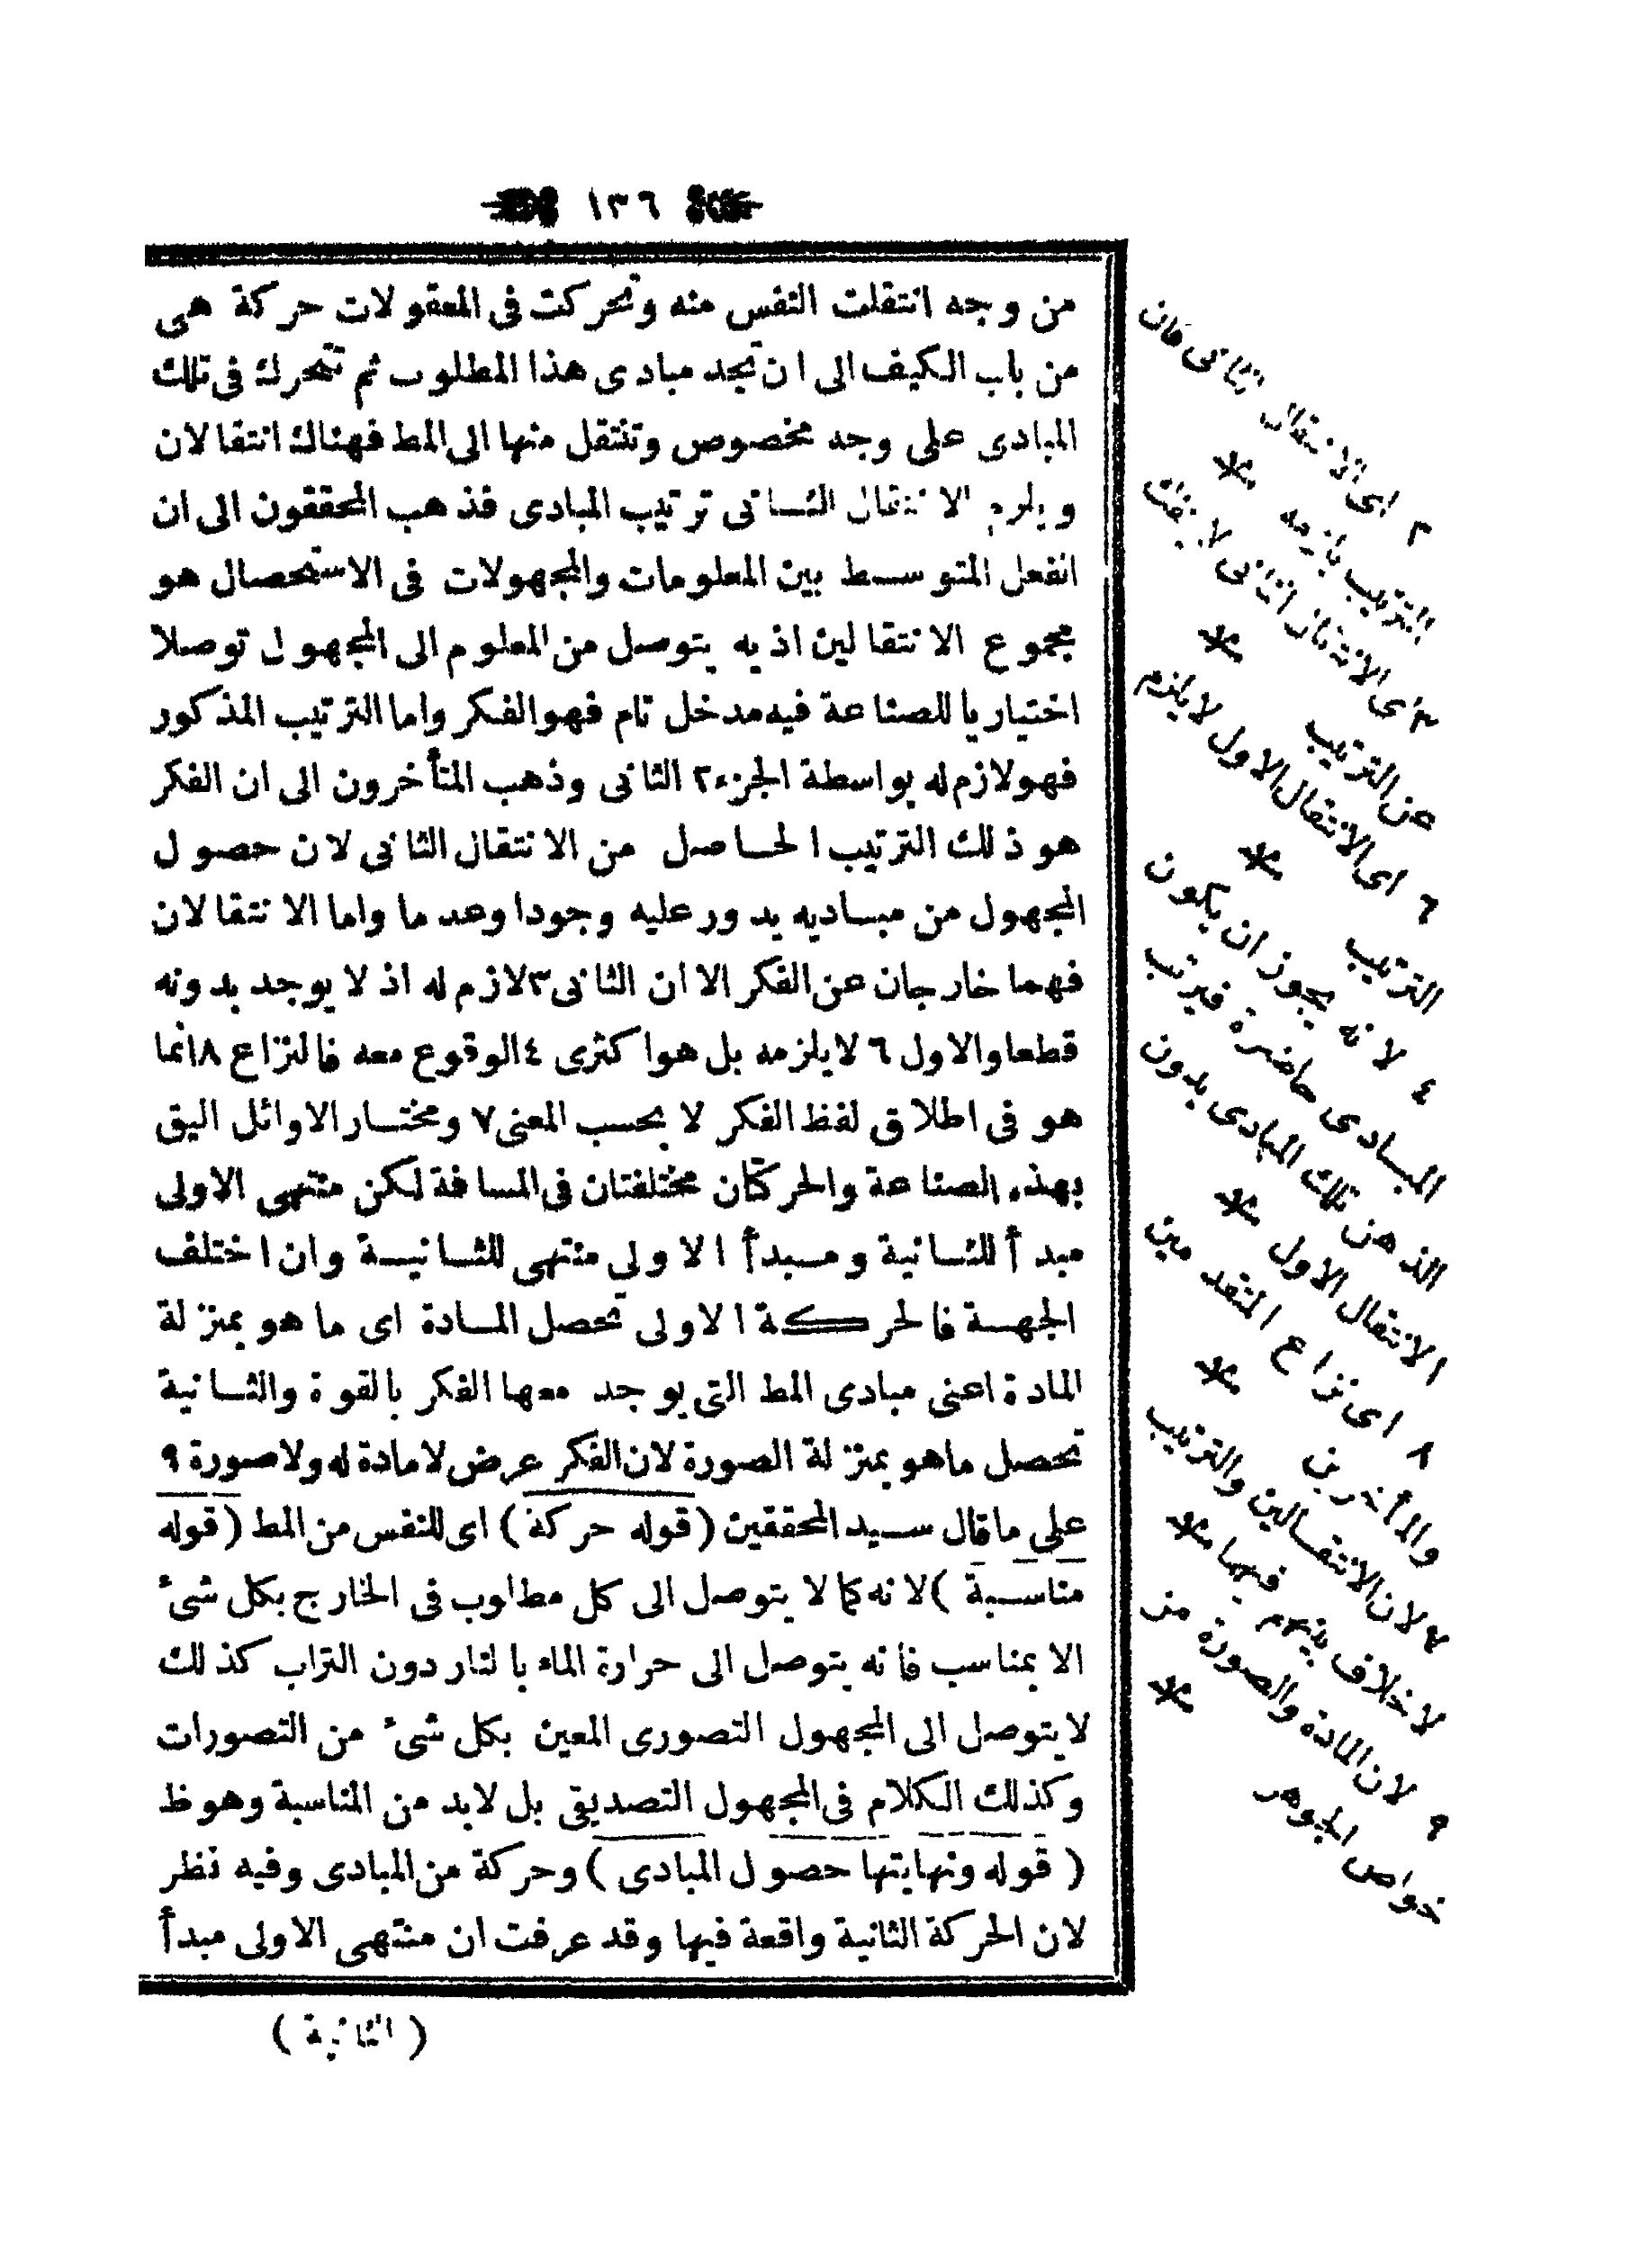 ١٣٦
من وجه انتقلت النفس منه وتحركت فى المعقولات حركة هى
من باب الكيف الى ان تجد مبادى هذا المطلوب ثم تتحرك فى تلك
المبادى على وجه مخصوص وتنتقل منها الى المط فهناك انتقالان
ويلزم الانتقال الثانى ترتيب المبادى فذهب المحققون الى ان
الفعل المتوسط بين المعلومات والمجهولات فى الاستحصال هو
مجموع الانتقالين اذ به يتوصل من المعلوم الى المجهول توصلا
اختياريا للصناعة فيه مدخل تام فهو الفكر واما الترتيب المذكور
فهو لازم له بواسطة الجزء ٢ الثانى وذهب المتأخرون الى ان الفكر
هو ذلك الترتيب الحاصل من الانتقال الثانى لان حصول
المجهول من مباديه يدور عليه وجودا وعدما واما الانتقالان
فهما خارجان عن الفكر الا ان الثانى ٣ لازم له اذ لا يوجد بدونه
قطعا والاول ٦ لا يلزمه بل هو اكثرى ٤ الوقوع معه فالنزاع ٨ انما
هو فى اطلاق لفظ الفكر لا بحسب المعنى ٧ ومختار الاوائل اليق
بهذه الصناعة والحركتان مختلفتان فى المسافة لكن منتهى الاولى
مبدأ للثانية ومبدأ الاولى منتهى للثانية وان اختلف
الجهة فالحركة الاولى تحصل المادة اى ما هو بمنزلة
المادة اعنى مبادى المط التى يوجد معها الفكر بالقوة والثانية
تحصل ما هو بمنزلة الصورة لان الفكر عرض لا مادة له ولا صورة ٩
على ما قال سيد المحققين (قوله حركة) اى للنفس من المط (قوله
مناسبة) لانه كما لا يتوصل الى كل مطلوب فى الخارج بكل شئ
الا بمناسب فانه يتوصل الى حرارة الماء بالنار دون التراب كذلك
لا يتوصل الى المجهول التصورى المعين بكل شئ من التصورات
وكذلك الكلام فى المجهول التصديقى بل لابد من المناسبة وهو ظ
(قوله ونهايتها حصول المبادى) وحركة من المبادى وفيه نظر
لان الحركة الثانية واقعة فيها وقد عرفت ان منتهى الاولى مبدأ
(الثانية)
٢ اى الانتقال الثانى فان
الترتيب يلزمه
٣ اى الانتقال الثانى لا ينفك
عن الترتيب
٦ اى الانتقال الاول لا يلزم
الترتيب
٤ لانه يجوز ان يكون
المبادى حاضرة فيرتب
الذهن تلك المبادى بدون
الانتقال الاول
٨ اى نزاع المتقدمين
والمتأخرين
٧ لان الانتقالين والترتيب
لا خلاف بينهم فيها
٩ لان المادة والصورة من
خواص الجوهر